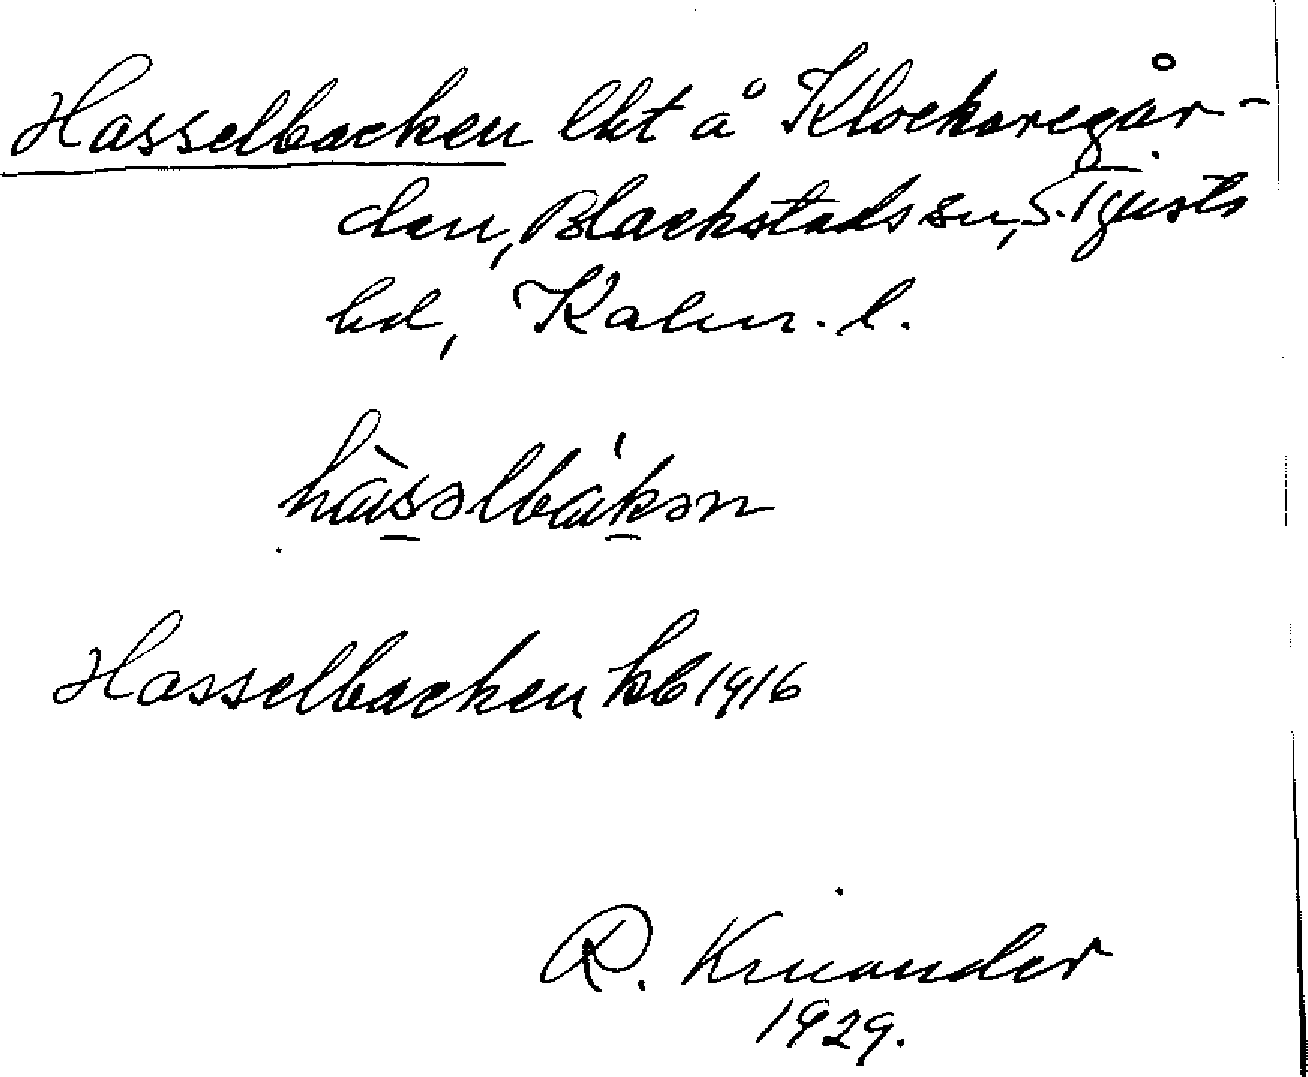 Hasselbacken lht å Klockaregår-
den, Blackstads sn, S. Tjusts
hd, Kalm. l.
hàsslbákən
Hasselbacken kb 1916
R. Kinander
1929.